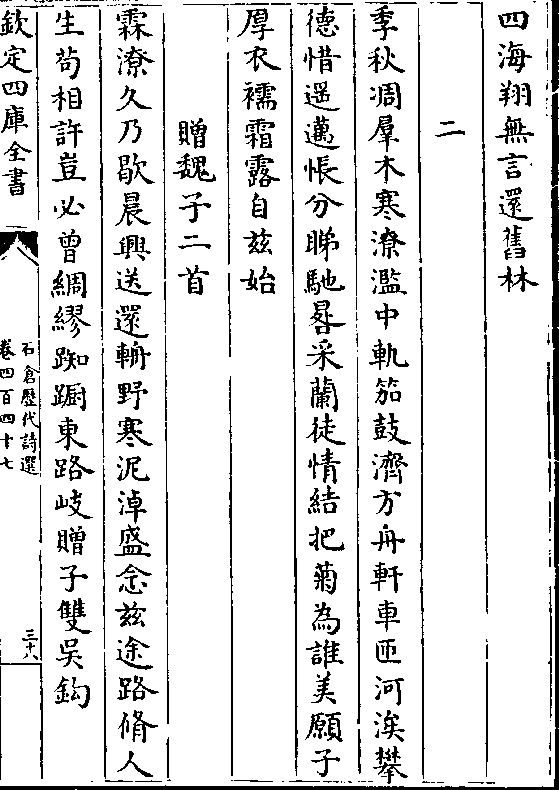 四海翔無言還舊林
二
季秋凋羣木寒潦濫中軌笳鼓濟方舟軒車匝河涘攀
德惜遥邁悵分睇馳晷采蘭徒情結把菊為誰美願子
厚衣襦霜露自兹始
贈魏子二首
霖潦久乃歇晨興送還輈野寒泥淖盛念兹途路脩人
生茍相許豈必曾綢繆踟蹰東路岐贈子雙吳鈎
欽定四庫全書
石倉歴代詩選
卷四百四十七
三十八